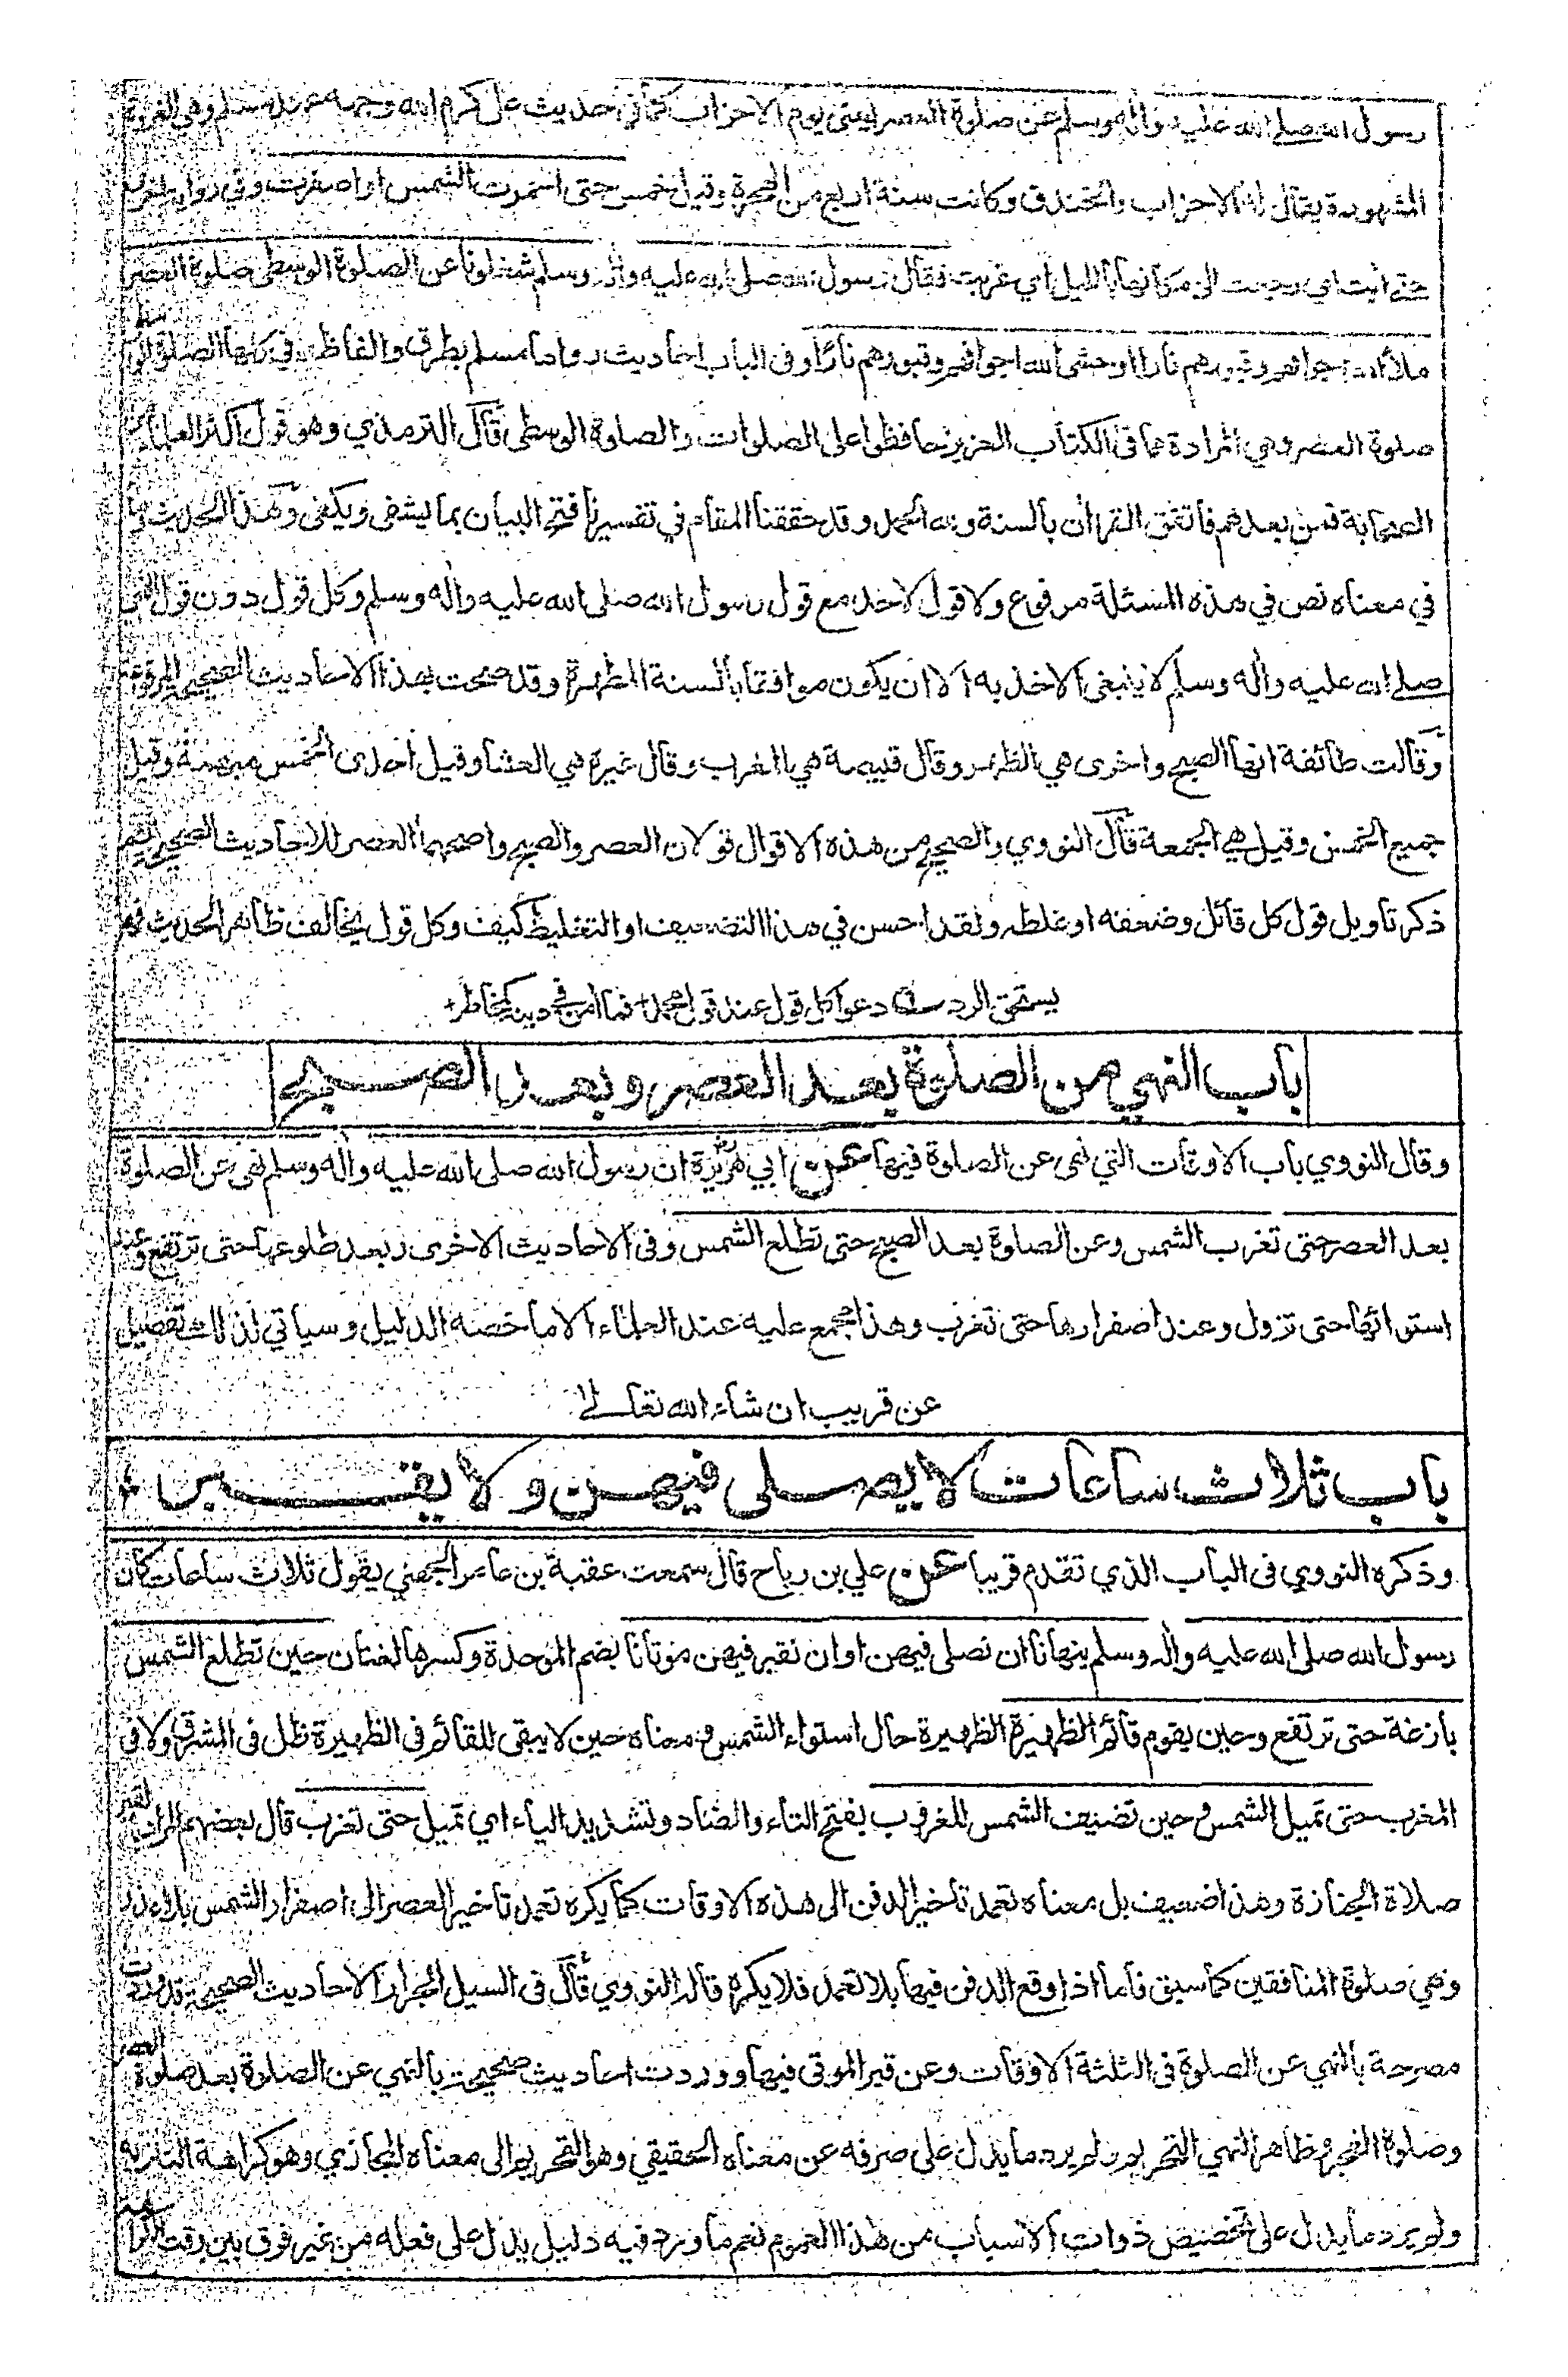 رسول الله صلى الله عليه واٰله وسلم عن صلوة العصر يعني يوم الاحزاب كما في حديث علي كرم الله وجهه عند مسلم وهي الغزوة
المشهورة يقال لها الاحزاب والخندق وكانت سنة اربع من الهجرة وقيل خمس حتى احمرت الشمس او اصفرت وفي رواية اخرى
حتى اٰبت اي رجعت الى مكانها بالليل اي غربت فقال رسول الله صلى الله عليه واٰله وسلم شغلونا عن الصلوة الوسطى صلوة العصر
ملأ الله اجوافهم وقبورهم نارا او حشى الله اجوافهم وقبورهم نارًا وفى الباب احاديث رواها مسلم بطرق والفاظ وفي كلها الصلوة الوسطى
صلوة العصر وهي المرادة مما في الكتاب العزيز حافظوا على الصلوات والصلوة الوسطى قال الترمذي وهو قول اكثر العلماء من
الصحابة فمن بعدهم فاتفق القراٰن بالسنة ولله الحمد وقد حققنا المقام في تفسيرنا فتح البيان بما يشفي ويكفي وهذا الحديث وما
في معناه نص في هذه المسئلة مرفوع ولا قول لاحد مع قول رسول الله صلى الله عليه واٰله وسلم وكل قول دون قول النبي
صلى الله عليه واٰله وسلم لا ينبغي الاخذ به الا ان يكون موافقا بالسنة المطهرة وقد صحت بهذا الاحاديث الصحيحة المرفوعة
وقالت طائفة انها الصبح واخرى هي الظهر وقال قبيصة هي المغرب وقال غيره هي العشا وقيل احدى الخمس مبهمة وقيل
جميع الخمس وقيل هي الجمعة قال النووي والصحيح من هذه الاقوال قولان العصر والصبح واصحهما العصر للاحاديث الصحيحة ثم
ذكر تاويل قول كل قائل وضعفه او غلطه ولقد احسن في هذا التضعيف او التغليظ كيف وكل قول يخالف ظاهر الحديث فهو
يستحق الرد دعوا كل قول عند قول محمد+ فما اٰمن في دينه كمخاطر+
باب النهي عن الصلوة بعد العصر وبعد الصبح
وقال النووي باب الاوقات التي نهى عن الصلوة فيها عن ابي هريرة ان رسول الله صلى الله عليه واٰله وسلم نهى عن الصلوة
بعد العصر حتى تغرب الشمس وعن الصلوة بعد الصبح حتى تطلع الشمس وفى الاحاديث الاخرى وبعد طلوعها حتى ترتفع وعند
استوائها حتى تزول وعند اصفرارها حتى تغرب وهذا مجمع عليه عند العلماء الا ما خصه الدليل وسياتي لذلك تفصيل
عن قريب ان شاء الله تعالى
باب ثلاث ساعات لا يصلى فيهن ولا يقبر +
وذكره النووي فى الباب الذي تقدم قريبا عن علي بن رباح قال سمعت عقبة بن عامر الجهني يقول ثلاث ساعات كان
رسول الله صلى الله عليه واٰله وسلم ينهانا ان نصلي فيهن او ان نقبر فيهن موتانا بضم الموحدة وكسرها لغتان حين تطلع الشمس
بازغة حتى ترتفع وحين يقوم قائم الظهيرة الظهيرة حال استواء الشمس ومعناه حين لا يبقى للقائم فى الظهيرة ظل فى المشرق ولا فى
المغرب حتى تميل الشمس وحين تضيف الشمس للغروب بفتح التاء والضاد وتشديد الياء اي تميل حتى تغرب قال بعضهم المراد بالقبر
صلاة الجنازة وهذا ضعيف بل معناه تعمد تاخير الدفن الى هذه الاوقات كما يكره تعمد تاخير العصر الى اصفرار الشمس بلا عذر
وهي صلوة المنافقين كما سبق فاما اذا وقع الدفن فيها بلا تعمد فلا يكره قاله النووي قال فى السيل الجرار الاحاديث الصحيحة قد وردت
مصرحة بالنهي عن الصلوة فى الثلثة الاوقات وعن قبر الموتى فيها ووردت احاديث صحيحة بالنهي عن الصلوة بعد صلوة العصر
وصلوة الفجر وظاهر النهي التحريم ولم يرد ما يدل على صرفه عن معناه الحقيقي وهو التحريم الى معناه المجازي وهو كراهة التنزيه
ولم يرد ما يدل على تخصيص ذوات الاسباب من هذا العموم نعم ما ورد فيه دليل يدل على فعله من غير فرق بين وقت الكراهة